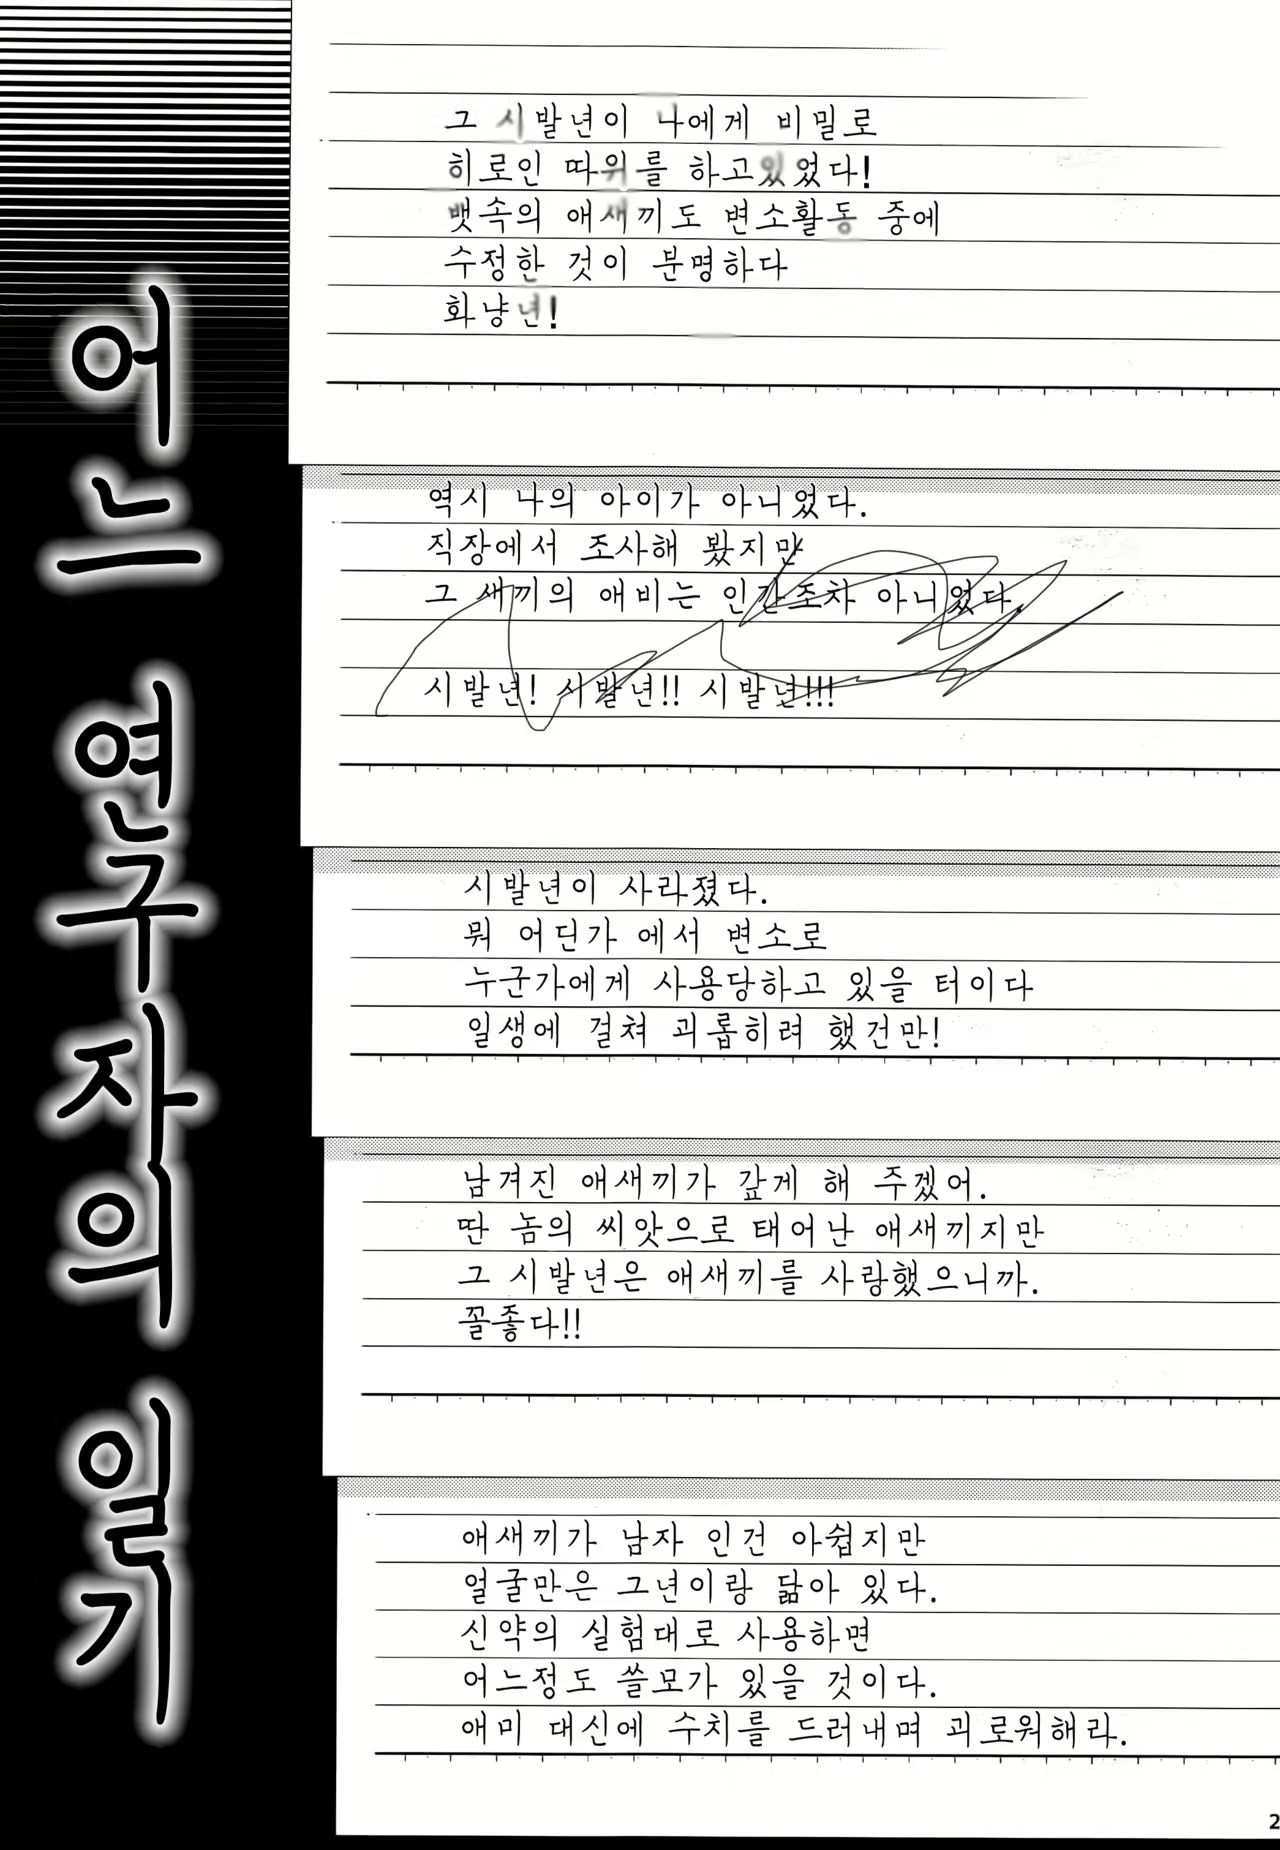 어느 연구자의 일기
그 시발년이 나에게 비밀로
히로인 따위를 하고있었다!
뱃속의 애새끼도 변소활동 중에
수정한 것이 분명하다
화냥년!
역시 나의 아이가 아니였다.
직장에서 조사해 봤지만
그 새끼의 애비는 인간조차 아니었다.
시발년! 시발년!! 시발년!!!
시발년이 사라졌다.
뭐 어딘가 에서 변소로
누군가에게 사용당하고 있을 터이다
일생에 걸쳐 괴롭히려 했건만!
남겨진 애새끼가 갚게 해 주겠어.
딴 놈의 씨앗으로 태어난 애새끼지만
그 시발년은 애새끼를 사랑했으니까.
꼴좋다!!
애새끼가 남자 인건 아쉽지만
얼굴만은 그년이랑 닮아 있다.
신약의 실험대로 사용하면
어느정도 쓸모가 있을 것이다.
애미 대신에 수치를 드러내며 괴로워해라.
2